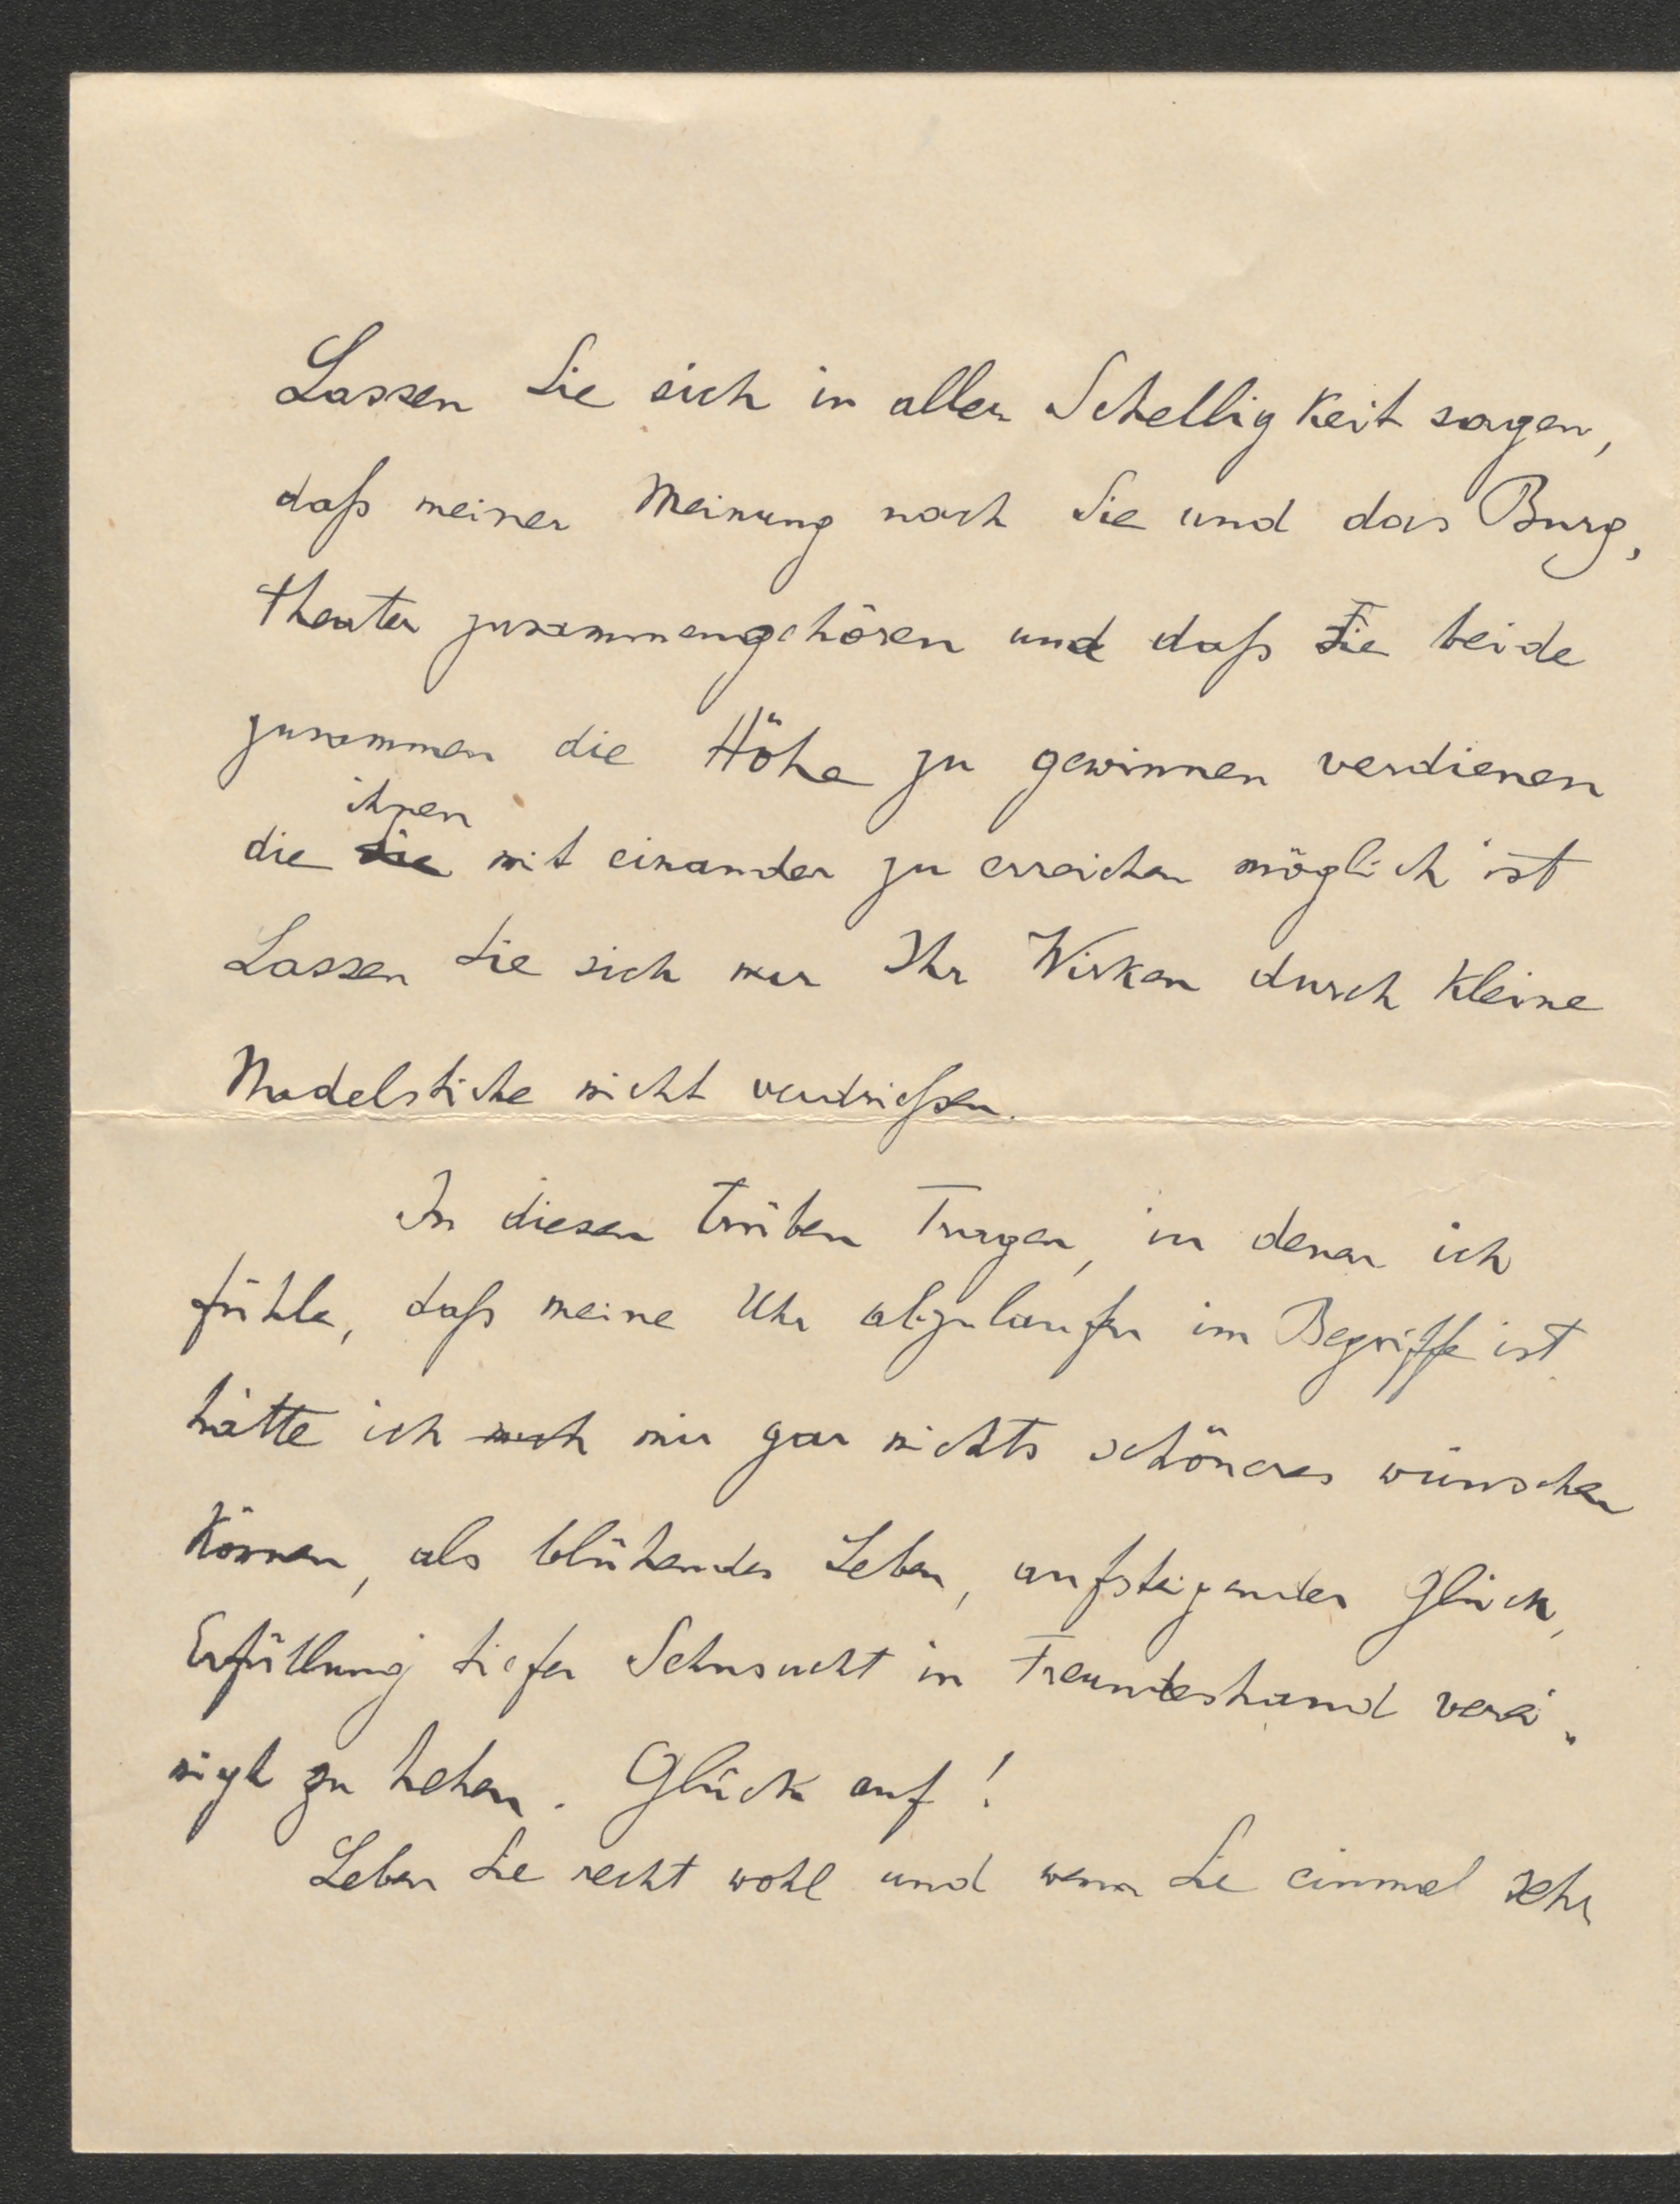 Lassen Sie sich in aller Schelligkeit sagen,
daß meiner Meinung nach Sie und das Burg,
theater zusammengehören und daß Sie beide
zusammen die Höhe zu gewinnen verdienen
ihnen
die die mit einander zu erreichen möglich ist
Lassen Sie sich nur Ihr Wirken durch kleine
Nadelstiche nicht verdrießen.
In diesen trüben Tagen, in denen ich
fühle, daß meine Uhr abzulaufen im Begriffe ist
hätte ich mich mir gar nichts schöneres wünschen
können, als blühendes Leben, aufsteigendes Glück,
Erfüllung tiefer Sehnsucht in Freundeshand verei„
nigt zu sehen. Glück auf!
Leben Sie recht wohl und wenn Sie einmal sehr